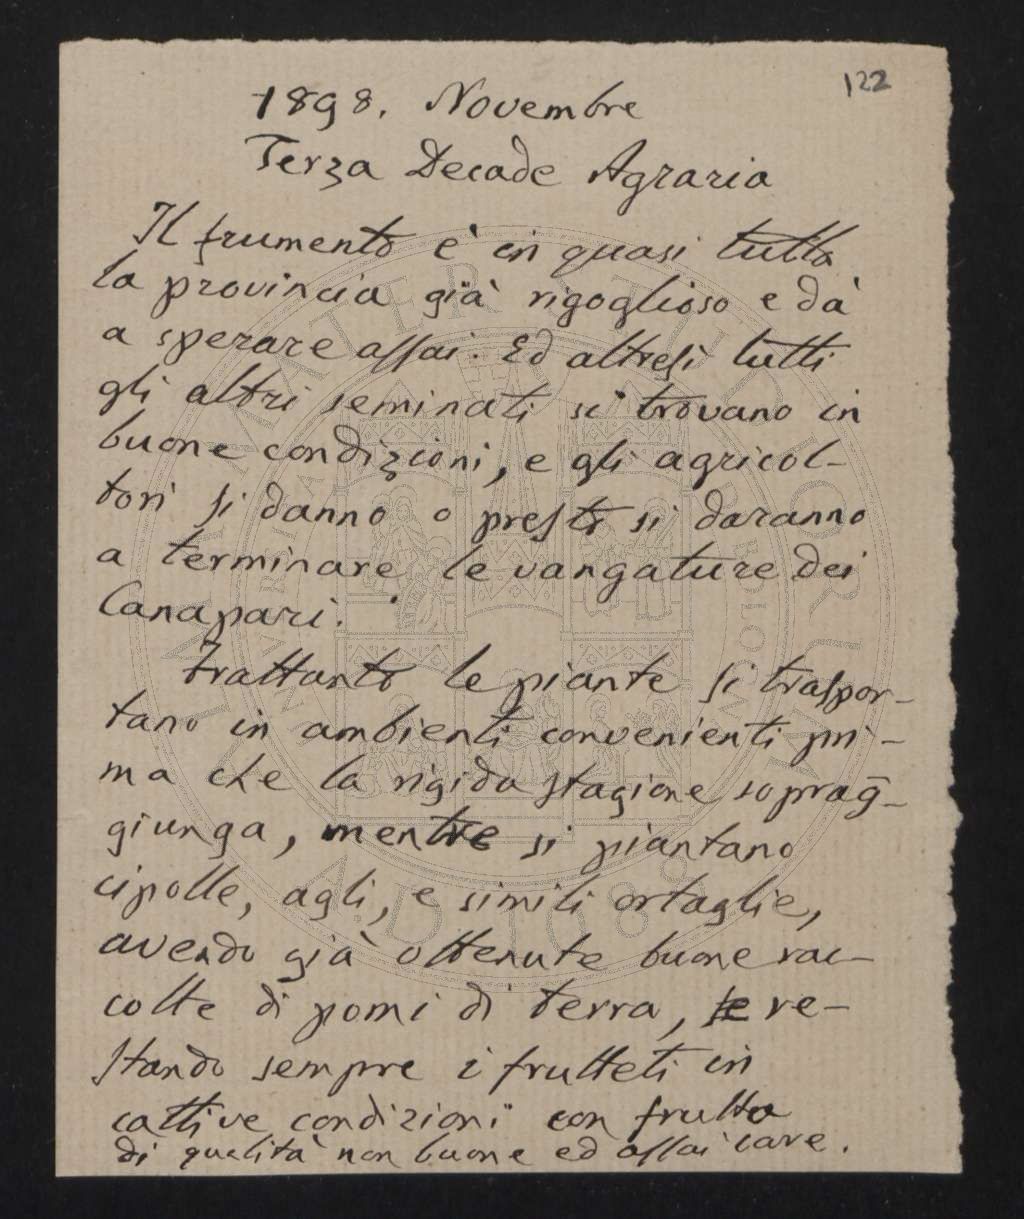 122
1898. Novembre
Terza Decade Agraria
Il frumento è in quasi tutta
la provincia già rigoglioso e dà
a sperare assai. Ed altresì tutti
gli altri seminati si trovano in
buone condizioni, e gli agricol-
tori si danno o presto si daranno
a terminare le vangature dei
Canapari.
Frattanto le piante si traspor-
tano in ambienti convenienti pri-
ma che la rigida stagione soprag-
giunga, mentre si piantano
cipolle, agli, e simili ortaglie,
avendo già ottenute buone rac-
colte di pomi di terra, e re-
stando sempre i frutteti in
cattive condizioni con frutta
di qualità non buone ed assai care.
ALMA MATER STUDIORUM
A.D. 1088